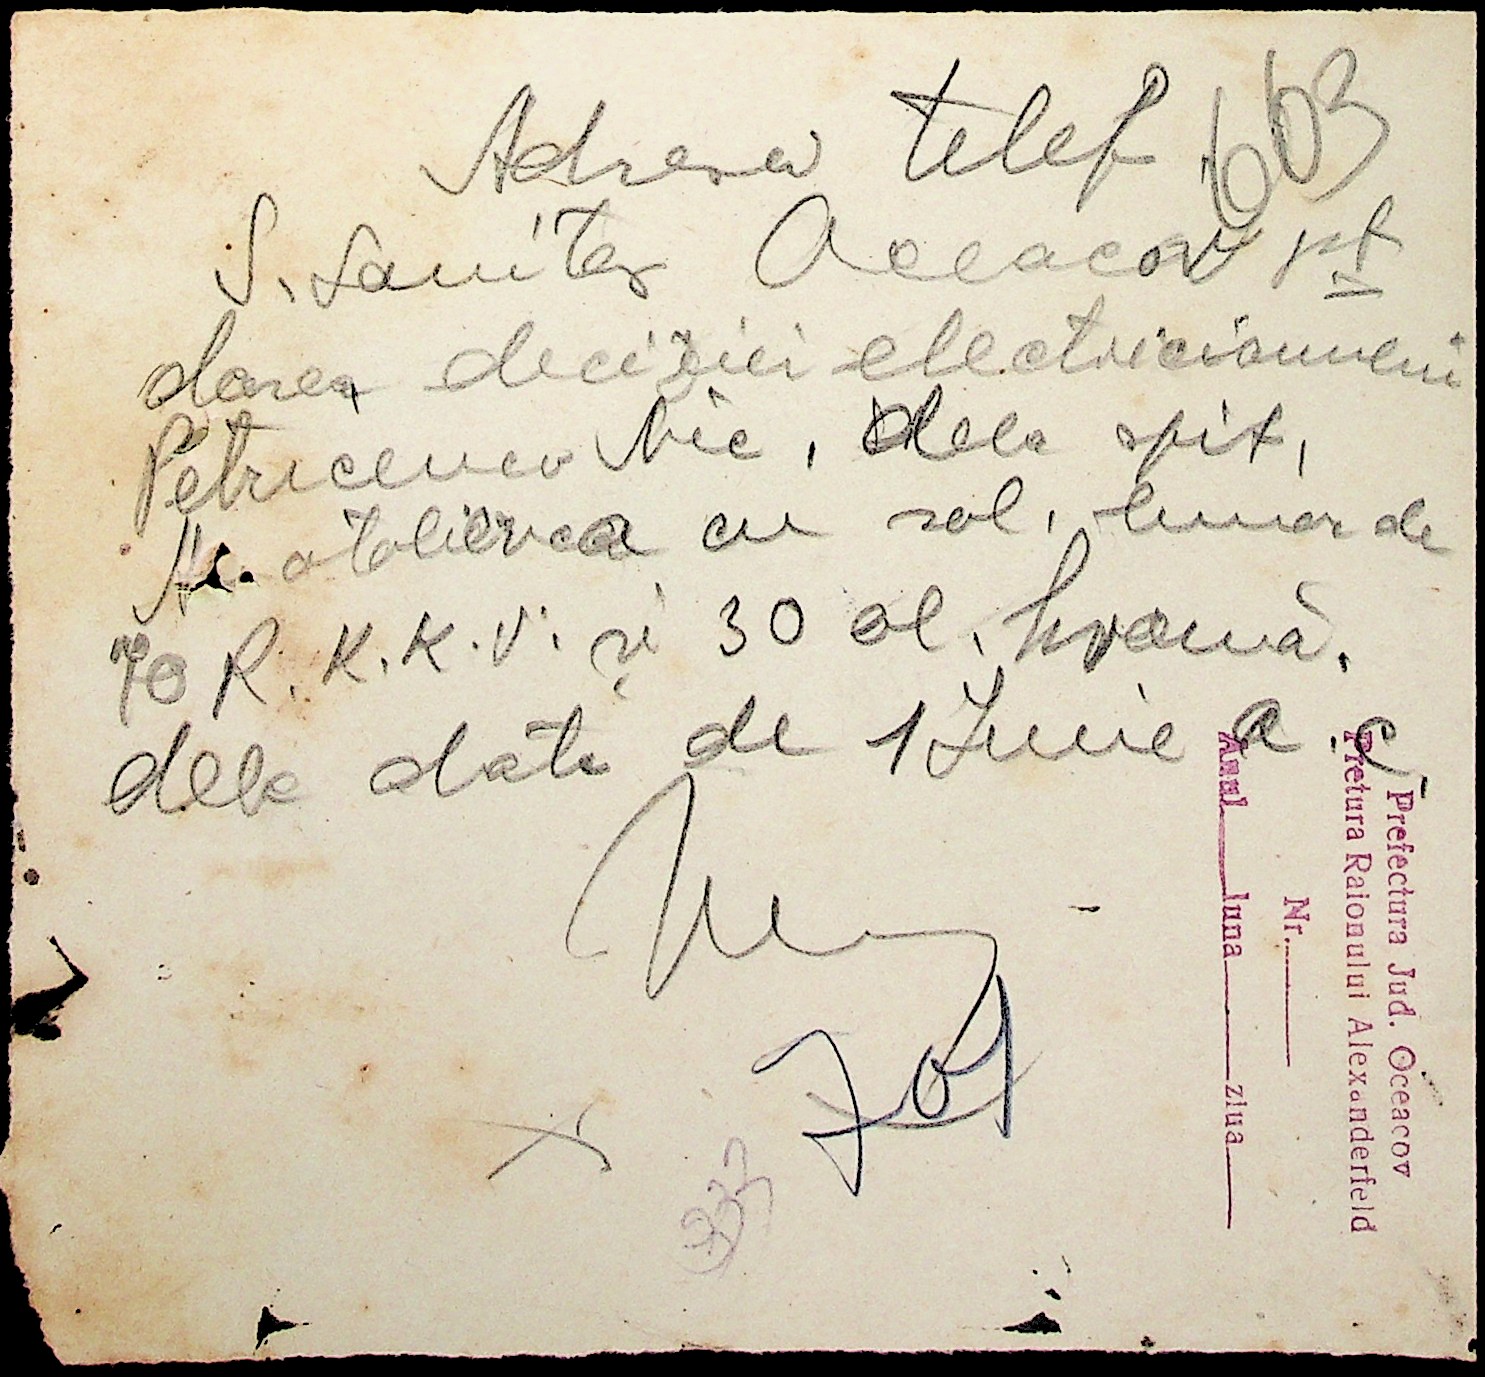 Adresa telef 603
S. Sanitar Oceacov pt
darea deciziei electricianului
Petricenco Nic, dela spit,
cu sal. lunar de
70 R.K.K.V. și 30 al. hrană.
dela data de 1 Iunie a.c.
Prefectura Jud. Oceacov
Pretura Raionului Alexanderfeld
Nr.
Anul luna ziua